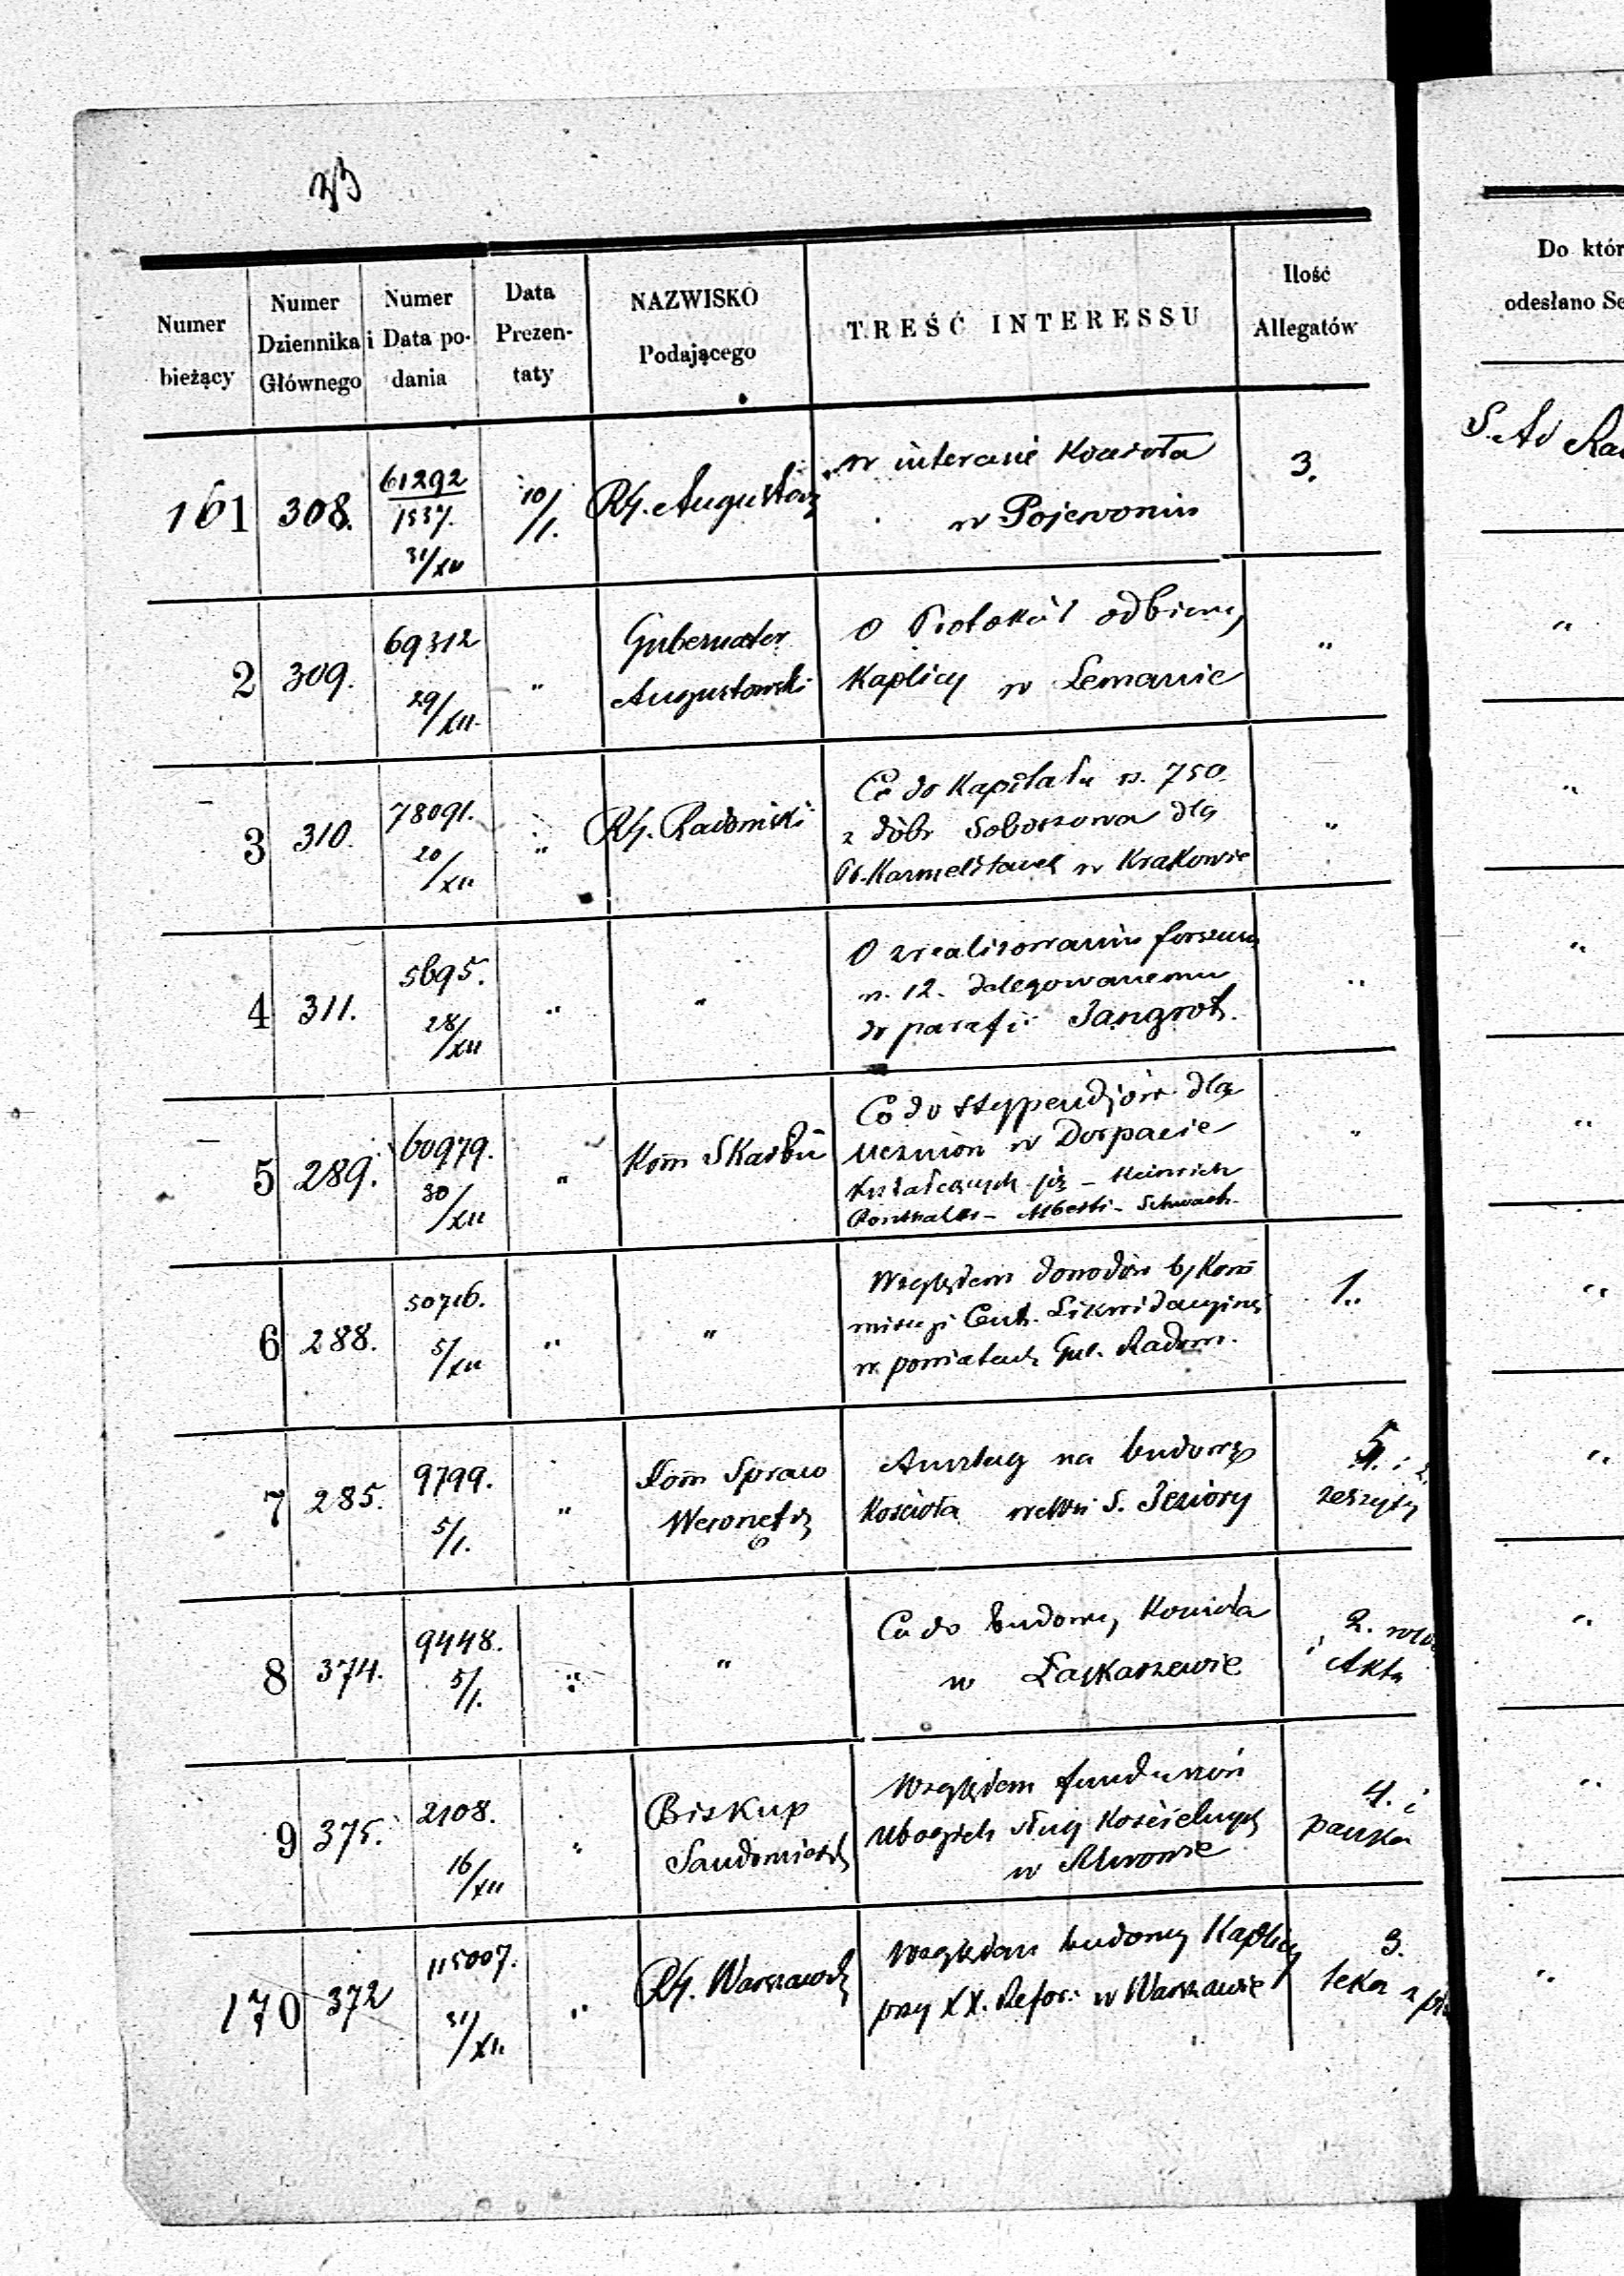 23
Numer bieżący
Numer Dziennika Głównego
Numer i Data podania
Data Prezentaty
NAZWISKO Podającego
TREŚĆ INTERESSU
Ilość Allegatów
Do któr
odesłano Se
161 308. 61292 / 1537. 31/XII 10/I. RG. Augustow
w interesie Kościoła
w Pojewoniu
3.
2 309. 69312 29/XII. "
Gubernator
Augustowski
O Protokół odbiorczy
Kaplicy w Lemanie
"
"
3 310. 78091. 20/XII " RG. Radomski
Co do Kapitału rs. 750.
z dóbr Soboszowa dla
PP. Karmelitanek w Krakowie
"
"
4 311. 5695. 28/XII " "
O zrealizowaniu forszusu
rs. 12. delegowanemu
do parafii Jangrot.
"
"
5 289. 60979. 30/XII " Kom Skarbu
Co do stypendjów dla
uczniów w Dorpacie
Kształcących się - Heinrich
Alberti - Schwach.
"
"
6 288. 50716. 5/XII " "
Względem dowodów by Kom
missyi Cent. Likwidacyjnej
w powiatach Gub. Radom.
1.
"
7 285. 9799. 5/I. "
Kom Spraw
Wewnętrz
Anszlag na budowę
Kościoła we wsi S. Jeziory
5. i 2.
zeszyty
"
8 374. 9448. 5/I. " "
Co do budowy Kościoła
w Łaskarzewie
2.
i Akta
"
9 375. 2108. 16/XII "
Biskup
Sandomierski
Względem funduszów
ubogich sług Kościelnych
w
4. i
paczka
"
170 372 115007. 31/XII " RG. Warszawski
Względem budowy Kaplicy
przy XX. Refor. w Warszawie
3.
teka z
"